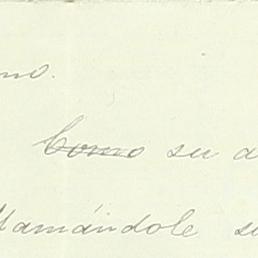 mo.
Como su a
llamándole su